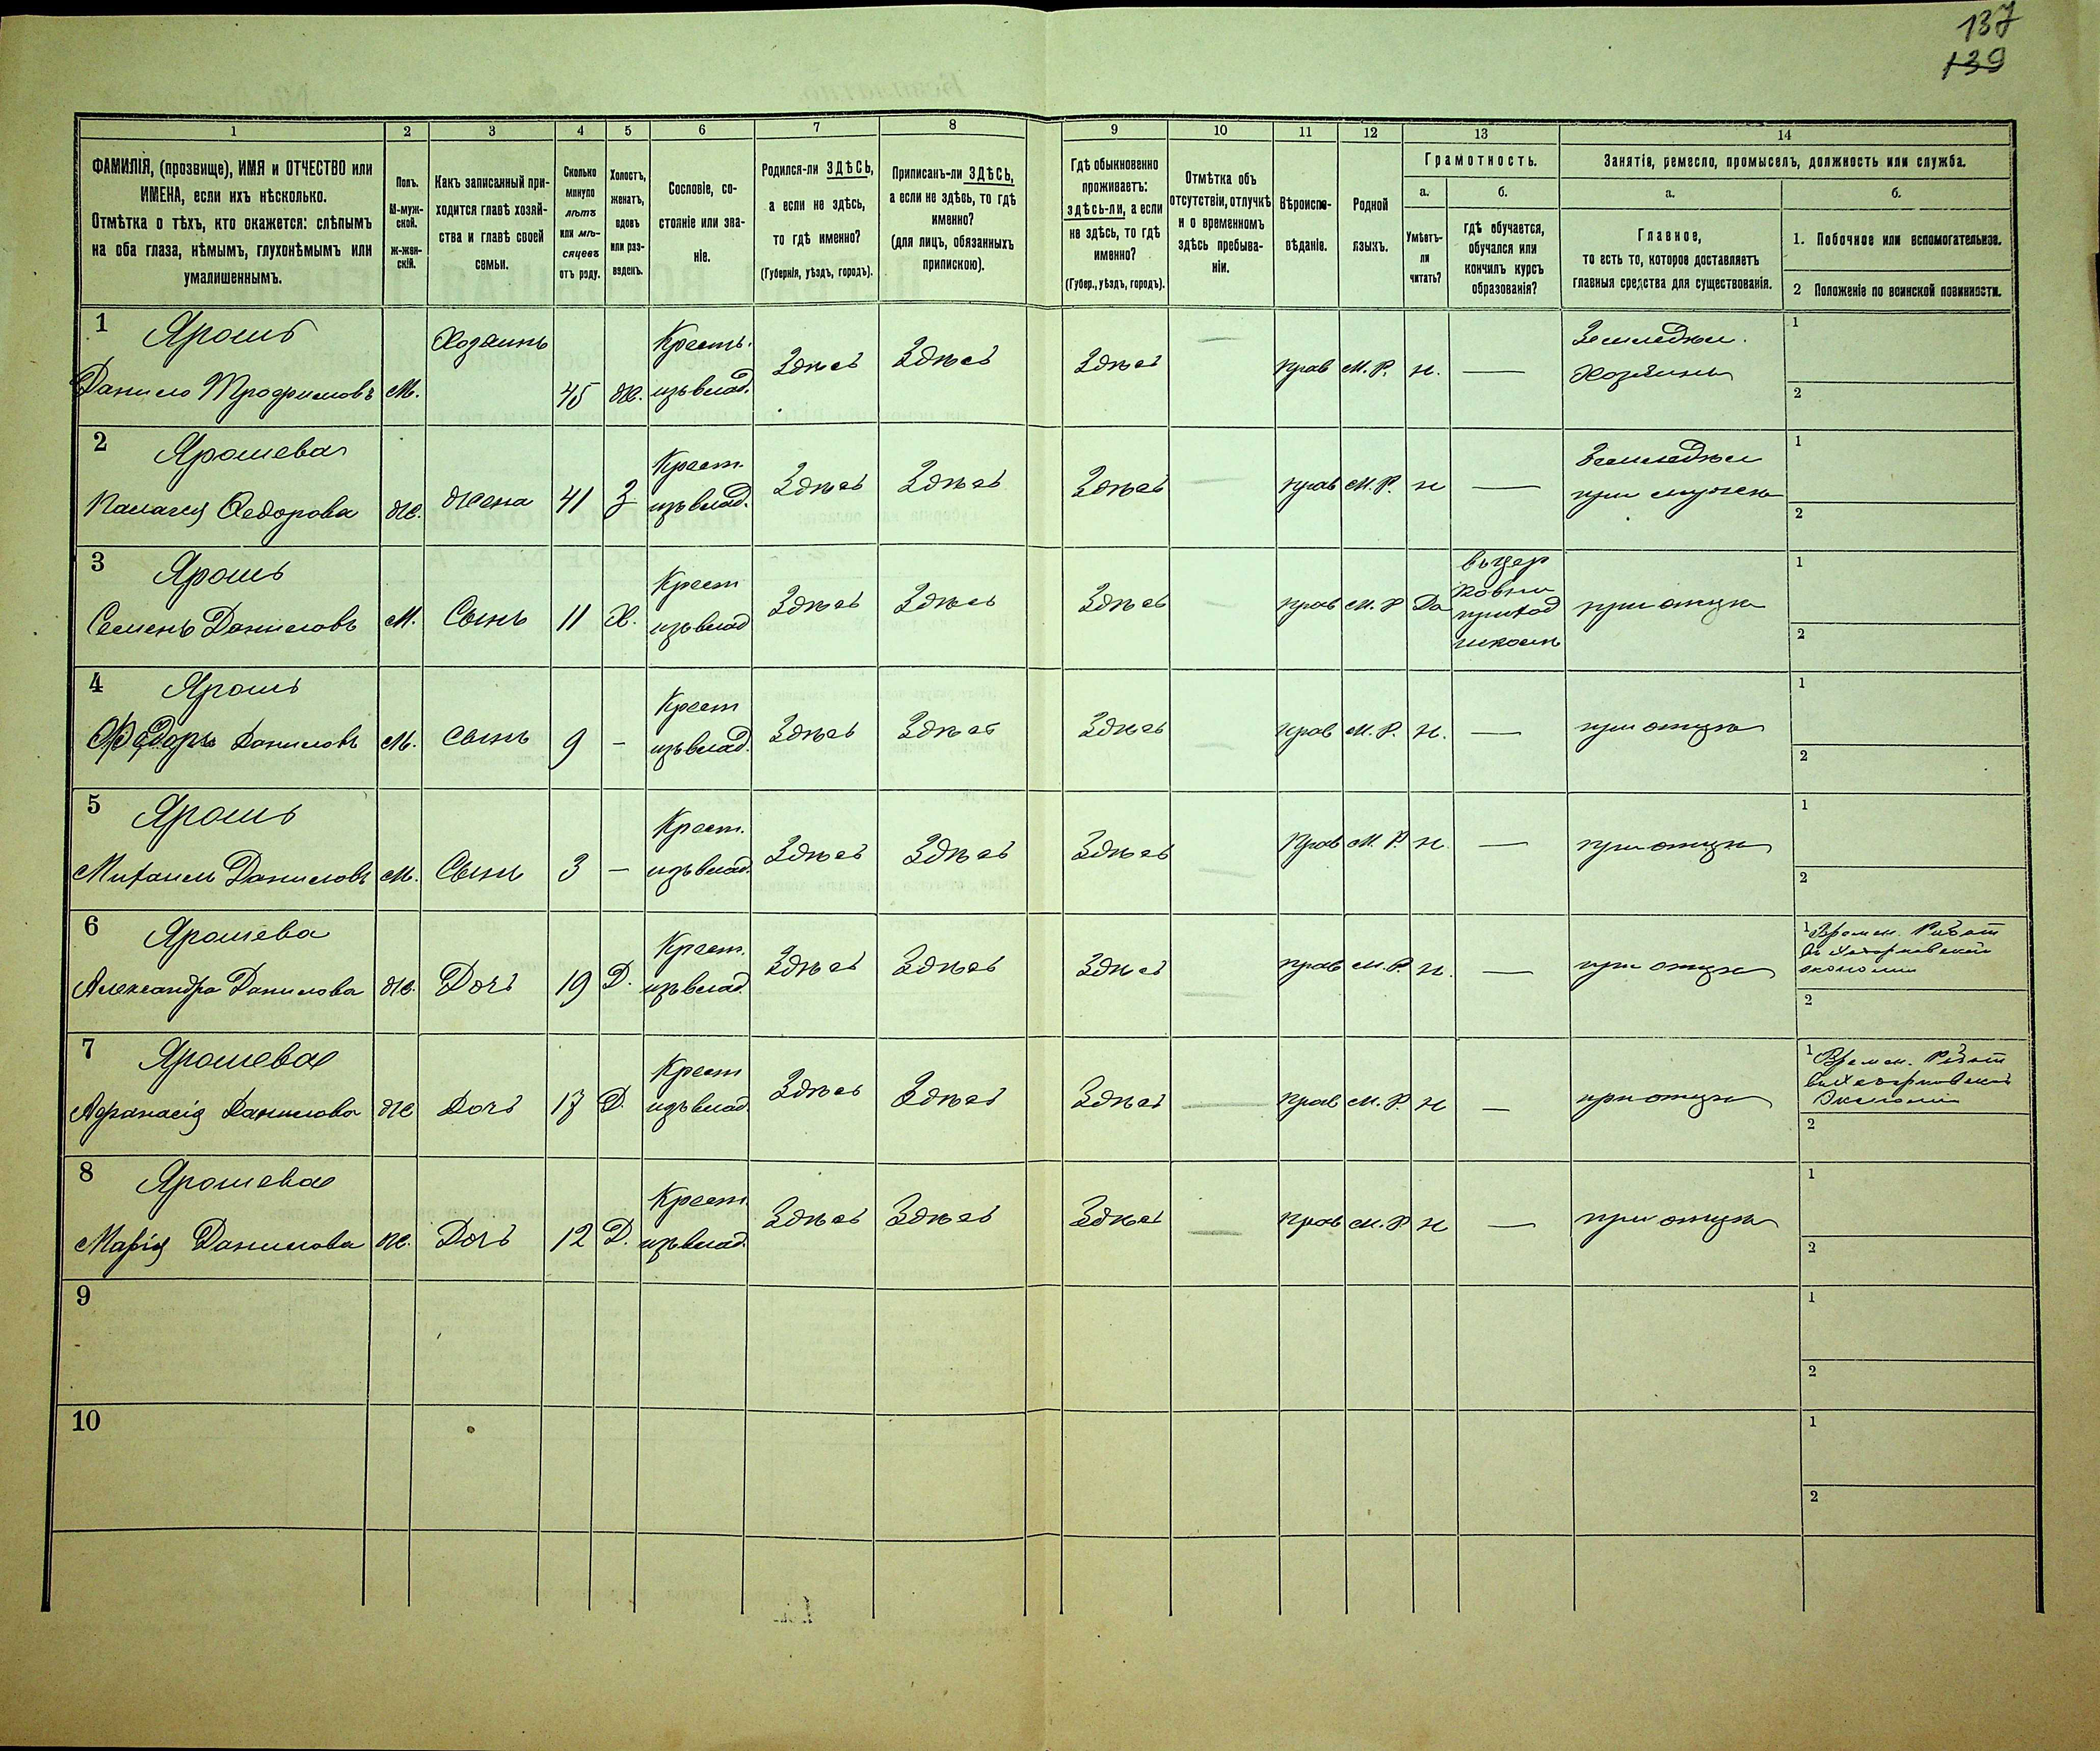 137
139
1 2 3 4 5 6 7 8 9 10 11 12 13 14
ФАМИЛІЯ, (прозвище), ИМЯ и ОТЧЕСТВО или
ИМЕНА, если ихъ нѣсколько.
Отмѣтка о тѣхъ, кто окажется: слѣпымъ
на оба глаза, нѣмымъ, глухонѣмымъ или
умалишеннымъ.
Полъ.
М-муж-
ской.
Ж-жен-
скій.
Какъ записанный при-
ходится главѣ хозяй-
ства и главѣ своей
семьи.
Сколько
минуло
лѣтъ
или мѣ-
сяцевъ
отъ роду.
Холостъ,
женатъ,
вдовъ
или раз-
веденъ.
Сословіе, со-
стояніе или зва-
ніе.
Родился-ли ЗДѢСЬ,
а если не здѣсь,
то гдѣ именно?
(Губернія, уѣздъ, городъ).
Приписанъ-ли ЗДѢСЬ,
а если не здѣсь, то гдѣ
именно?
(для лицъ, обязанныхъ
припискою).
Гдѣ обыкновенно
проживаетъ:
здѣсь-ли, а если
не здѣсь, то гдѣ
именно?
(Губер., уѣздъ, городъ).
Отмѣтка объ
отсутствіи, отлучкѣ
и о временномъ
здѣсь пребыва-
ніи.
Вѣроиспо-
вѣданіе.
Родной
языкъ.
Грамотность.
а. б.
Умѣетъ-
ли
читать?
гдѣ обучается,
обучался или
кончилъ курсъ
образованія?
Занятіе, ремесло, промыселъ, должность или служба.
а. б.
Главное,
то есть то, которое доставляетъ
главныя средства для существованія.
1. Побочное или вспомогательное.
2 Положеніе по воинской повинности.
1 Ярошъ Хозяинъ Кресть. Земледѣл. 1
Данило Трофимовъ М. 45 Ж. изъ влад. Здѣсь Здѣсь Здѣсь — Прав М. Р. Н. — Хозяинъ 2
2 Ярошева Крест. Земледѣл 1
Палагея Федорова Ж. Жена 41 З изъ влад. Здѣсь Здѣсь Здѣсь — прав М. Р. Н — при мужѣ 2
3 Ярошъ Крест въ цер 1
ковно
Семенъ Даниловъ М. Сынъ 11 Х. изъ влад Здѣсь Здѣсь Здѣсь — прав М. Р Да приход при отцѣ 2
школѣ
4 Ярошъ Крест 1
Ѳедоръ Даниловъ М. Сынъ 9 — изъ влад. Здѣсь Здѣсь Здѣсь — прав М. Р. Н. — при отцѣ 2
5 Ярошъ Крест. 1
Михаилъ Даниловъ М. Сынъ 3 — изъ влад. Здѣсь Здѣсь Здѣсь — Прав М. Р. Н. — при отцѣ 2
6 Ярошева Крест. 1 Времен. Работ
въ
экономіи
Александра Данилова Ж. Дочь 19 Д. изъ влад. Здѣсь Здѣсь Здѣсь — прав М. Р. Н. — при отцѣ 2
7 Ярошевае Крест 1 Времен. Работ
Экономіи
Афанасія Данилова Ж Дочь Д. изъ влад Здѣсь Здѣсь Здѣсь — прав М. Р. Н — при отцѣ 2
8 Ярошевае Крест. 1
Марія Данилова Ж. Дочь 12 Д. изъ влад. Здѣсь Здѣсь Здѣсь — прав М. Р Н — при отцѣ 2
9 1
2
10 1
2